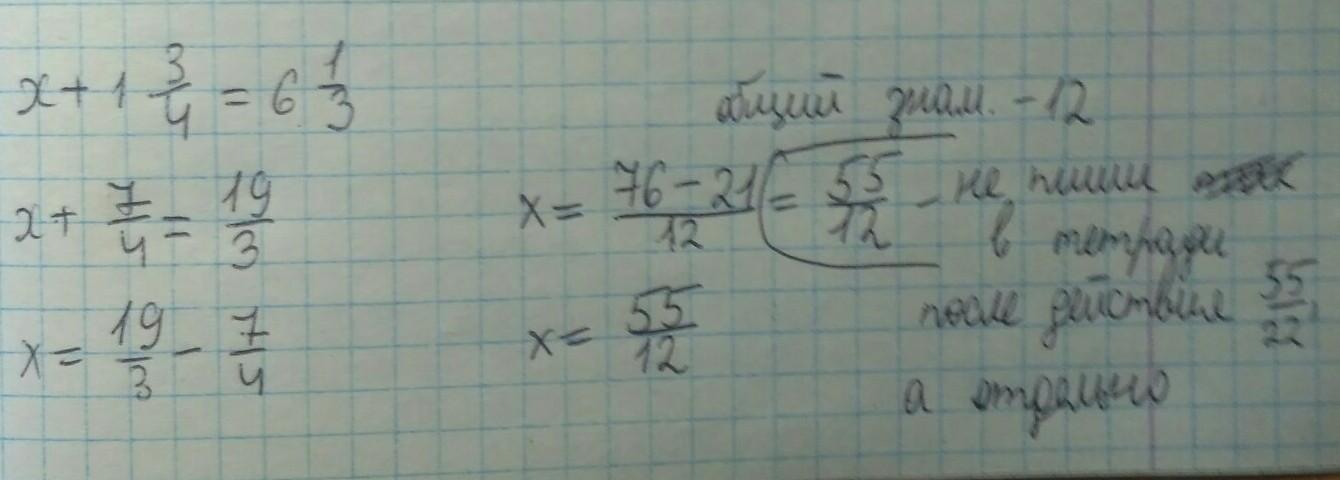 x + 1 3/4 = 6 1/3
x + 7/4 = 19/3
x = 19/3 - 7/4
общий знам. - 12
x = (76 - 21)/12 = 55/12 - не пиши
в тетради
после действия 55/22,
а отдельно
x = 55/12